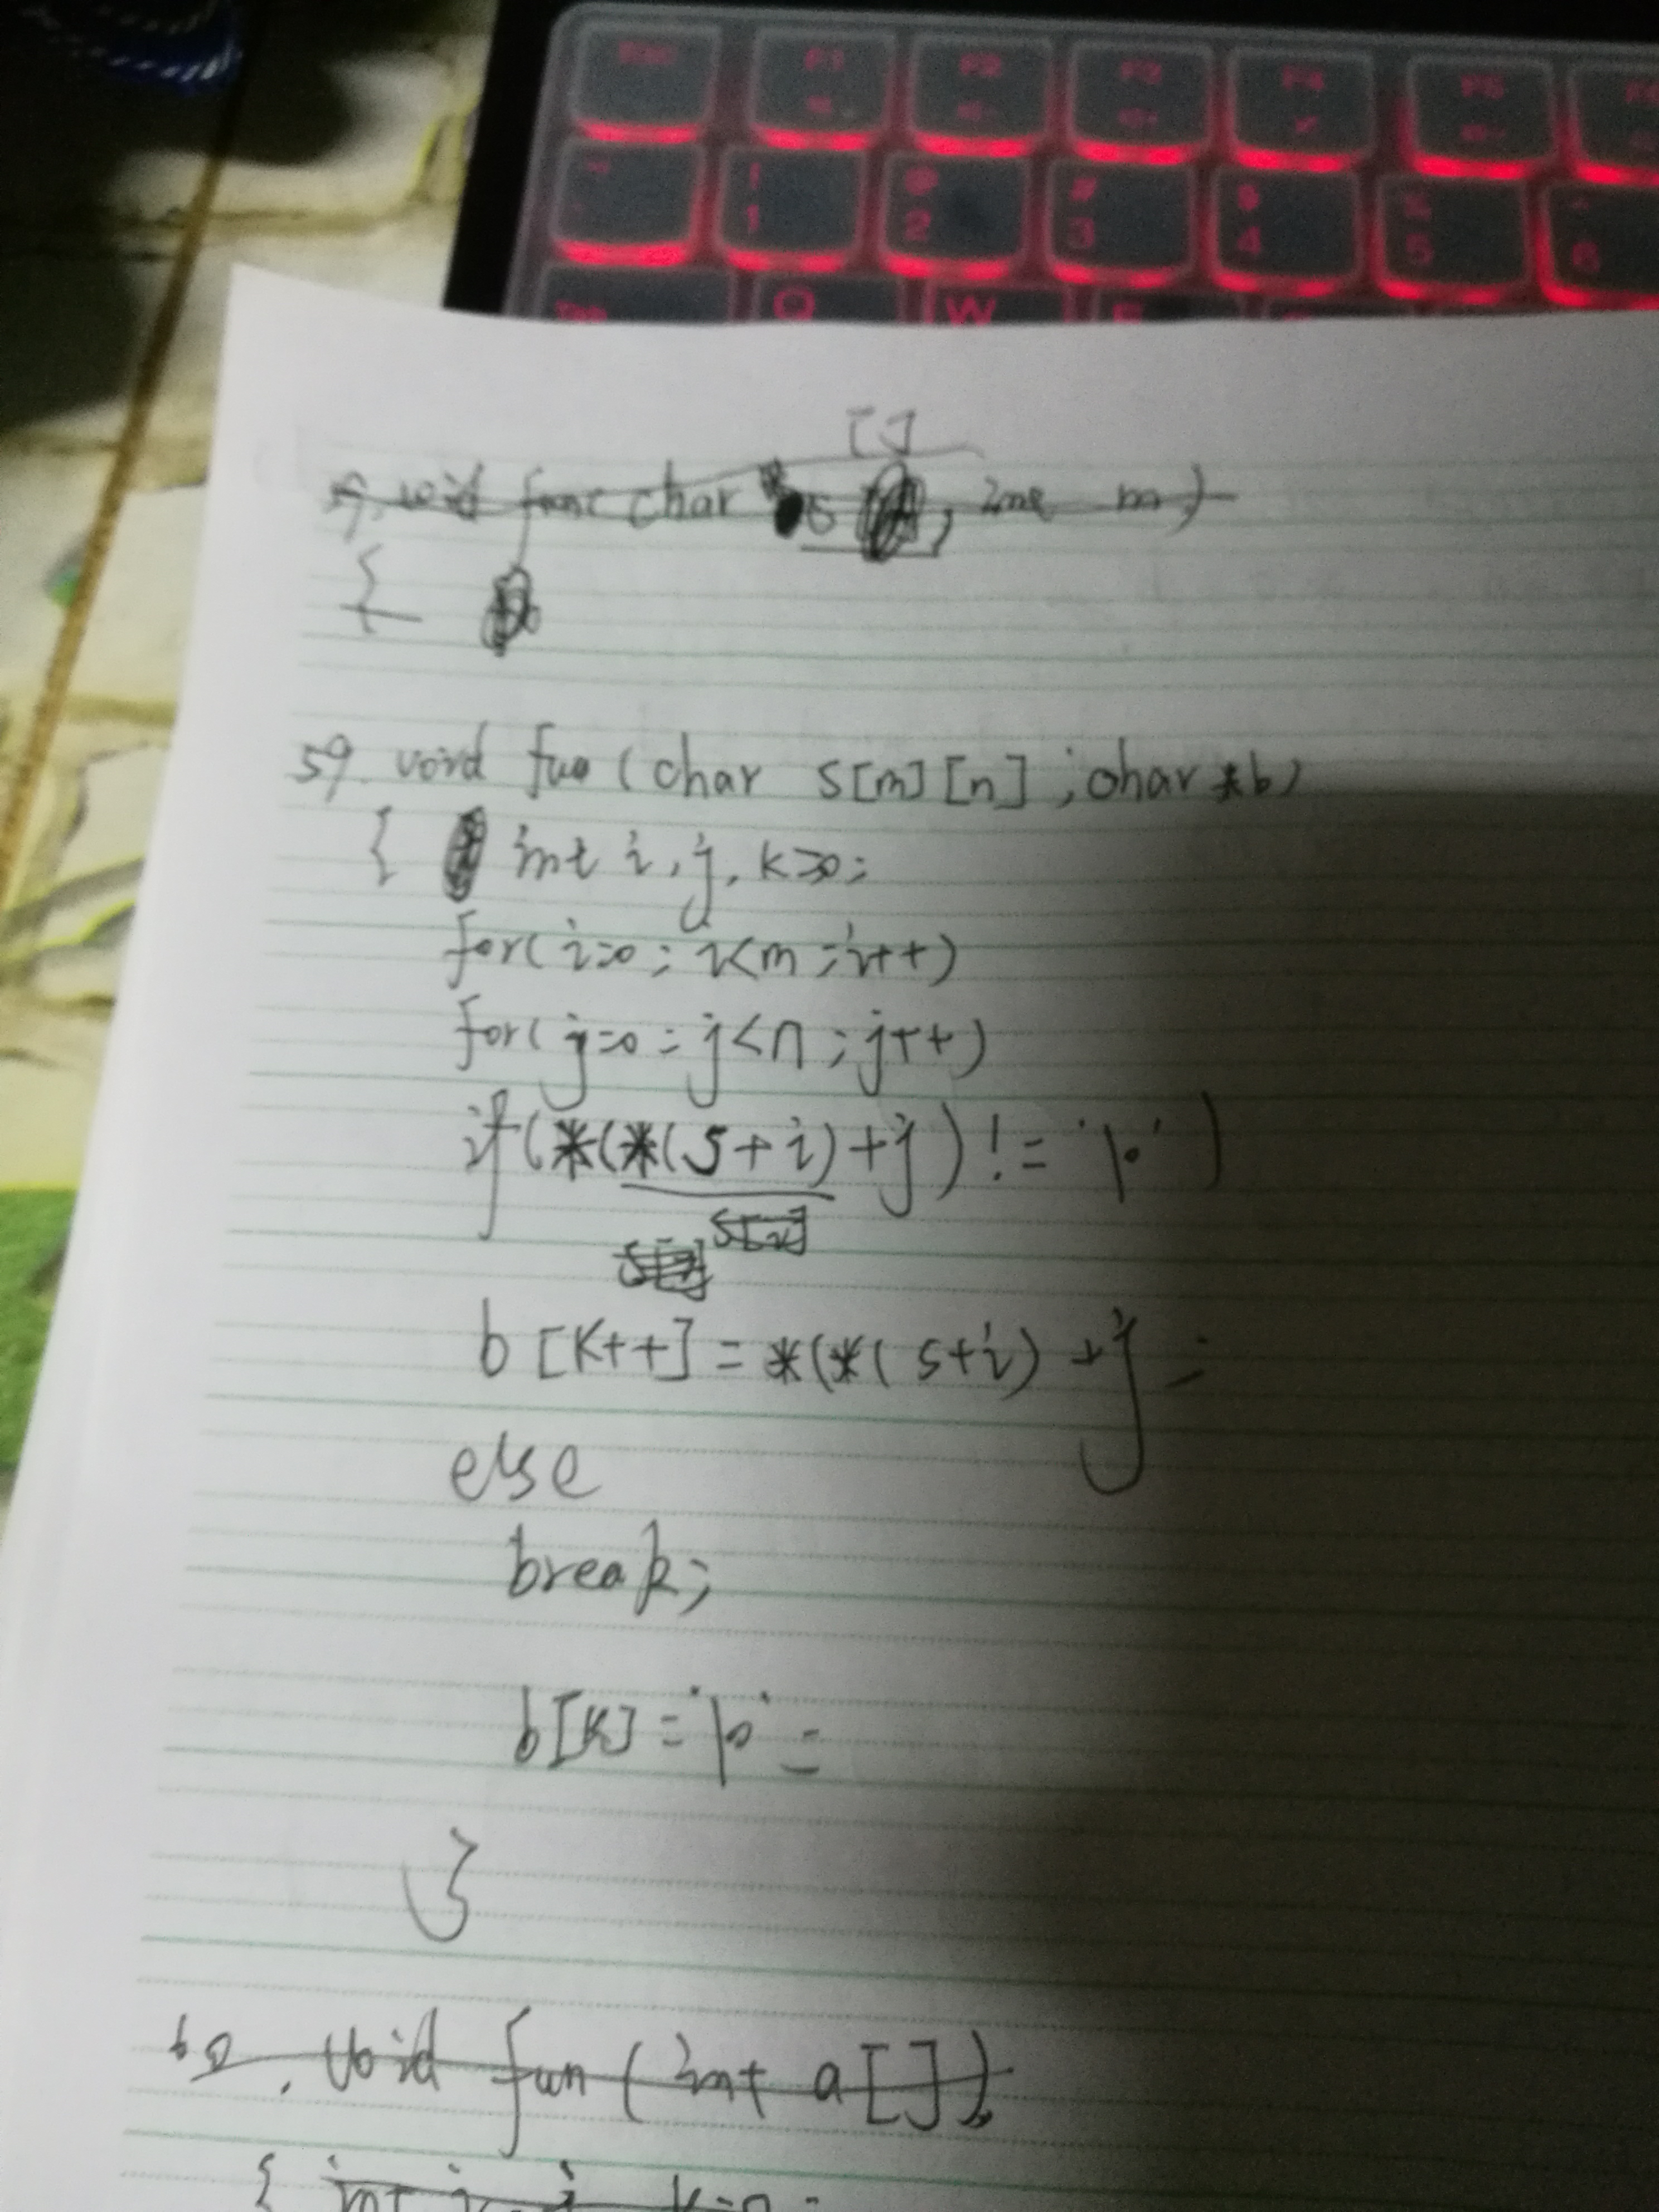 Esc F1 F2 F3 F4 F5 F6
~ ! 1 @ 2 # 3 $ 4 % 5 ^ 6
Tab Q W E
[]
59. void func char s , m)
{
59. void fun (char s[m][n] ; char *b)
{ int i, j, k=0;
for( i=0 ; i<m ; i++)
for( j=0 ; j<n ; j++)
if (*(*(s+i)+j) != '\0' )
s[i]
b [k++] = *(*( s+i) +j ;
else
break;
b[k] = '\0' ;
}
60. void fun ( int a[])
{ int i, j, k=0 ;